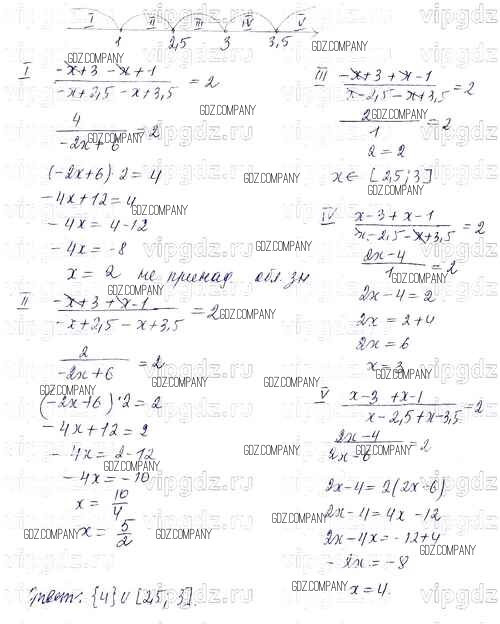 I II III IV V
1 2,5 3 3,5
I -x+3-x+1 / -x+2,5-x+3,5 = 2
4 / -2x+6 = 2
(-2x+6)·2=4
-4x+12=4
-4x=4-12
-4x=-8
x=2 не принад. обл. зн
II -x+3+x-1 / -x+2,5-x+3,5 = 2
2 / -2x+6 = 2
(-2x+6)·2=2
-4x+12=2
-4x=2-12
-4x=-10
x= 10/4
x= 5/2
III -x+3+x-1 / x-2,5-x+3,5 = 2
2 / 1 = 2
2=2
x∈[2,5;3]
IV x-3+x-1 / x-2,5-x+3,5 = 2
2x-4 / 1 = 2
2x-4=2
2x=2+4
2x=6
x=3
V x-3+x-1 / x-2,5+x-3,5 = 2
2x-4 / 2x-6 = 2
2x-4=2(2x-6)
2x-4=4x-12
2x-4x=-12+4
-2x=-8
x=4.
Ответ: {4}∪[2,5;3].
GDZ.COMPANY
vipgdz.ru